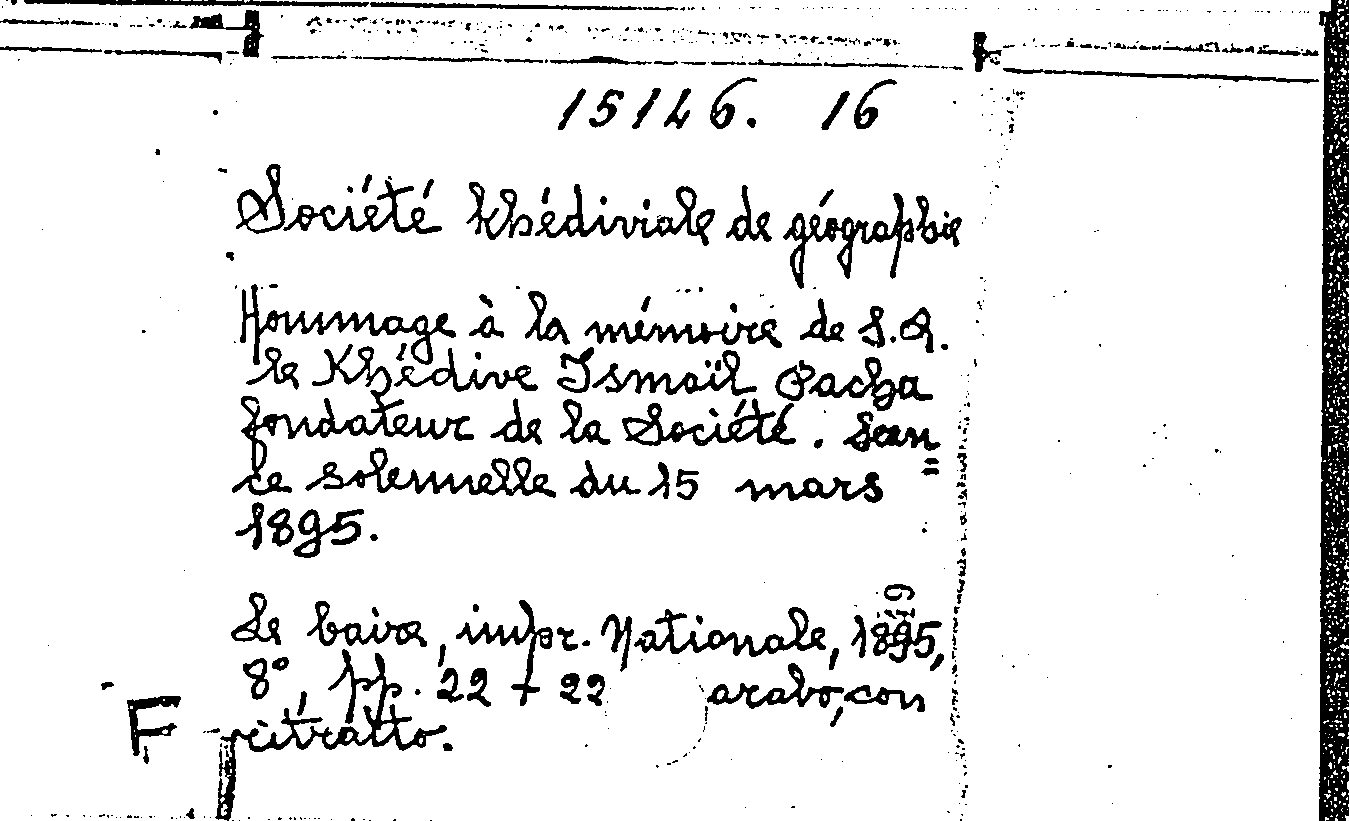 15146. 16
Société khédiviale de géographie
Hommage à la mémoire de S.A.
le Khédive Ismaïl Pacha
fondateur de la Société. Sean=
ce solennelle du 15 mars
1895.
Le Caire, impr. Nationale, 1895,
8°, pp. 22 + 22 arabo, con
ritratto.
F